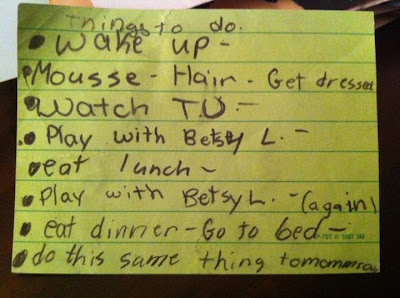 Things to do.
• Wake up -
• Mousse - Hair - Get dressed
• Watch T.V -
• Play with Betsy L. -
• eat lunch -
• Play with Betsy L. - (again)
• eat dinner - Go to bed -
• do this same thing tomommrow